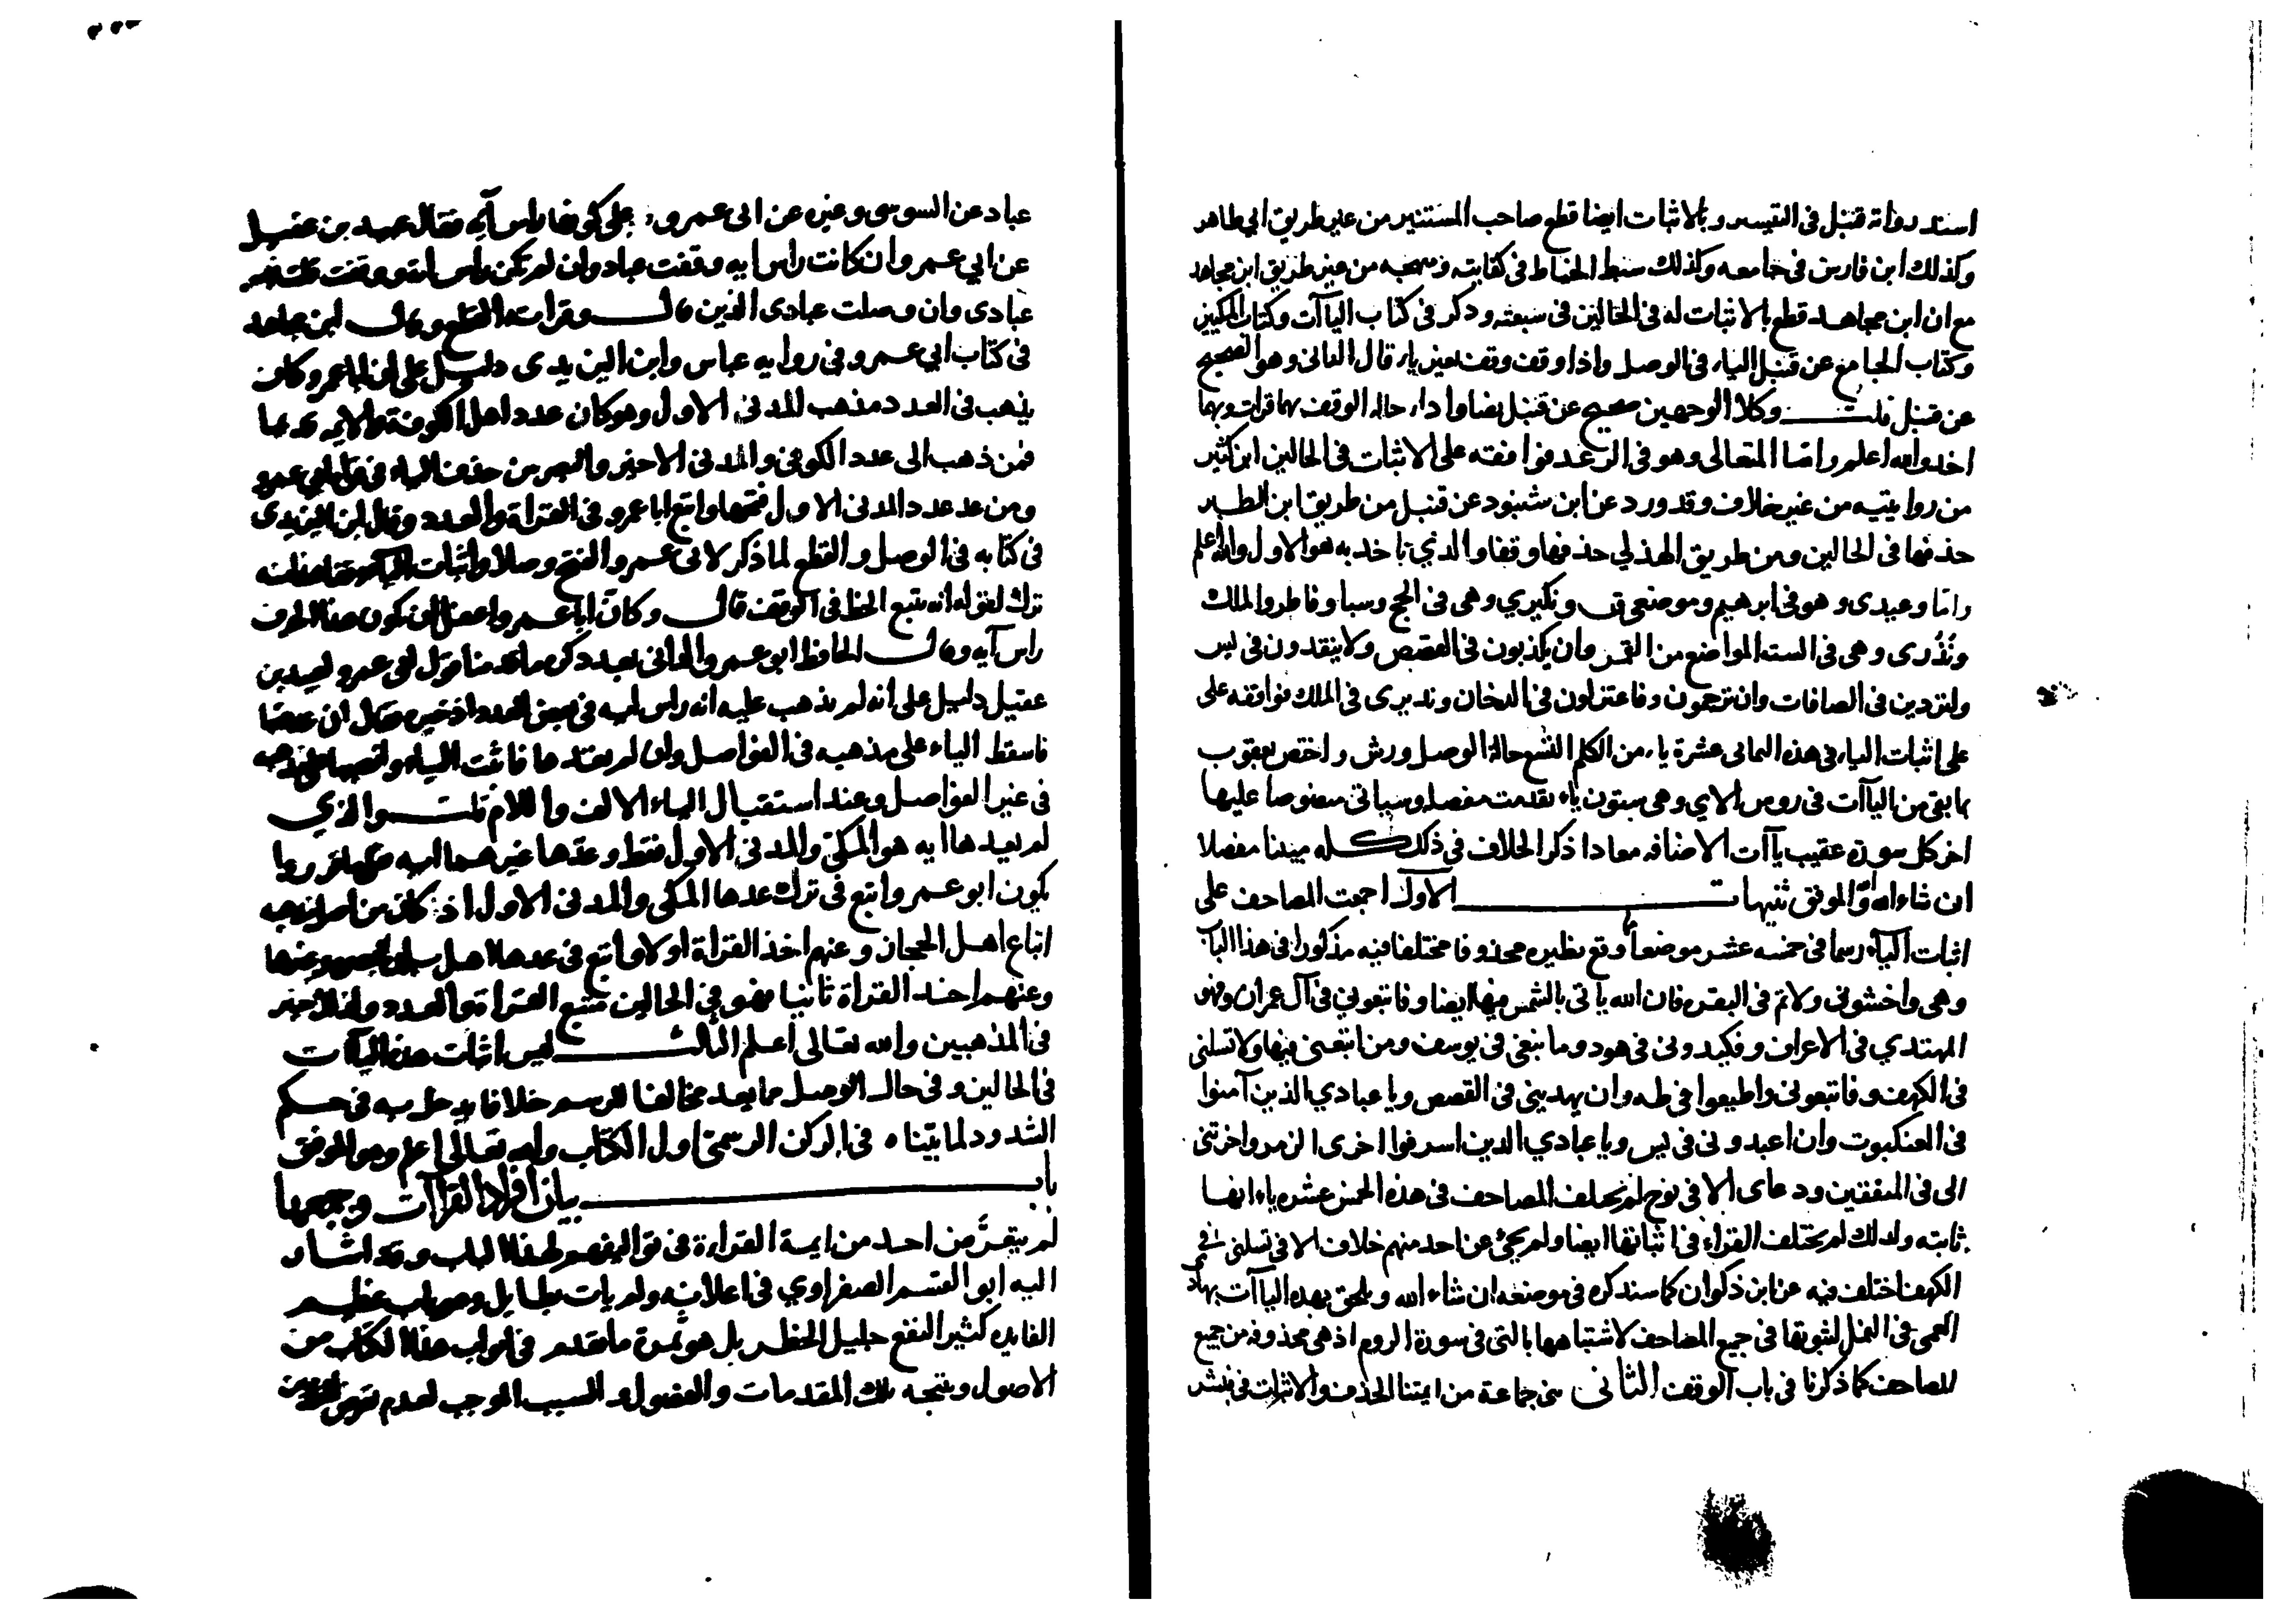 اسند رواة قنبل فى التيسير وبالاثبات ايضا قطع صاحب المستنير من غير طريق ابي طاهر
وكذلك ابن فارس فى جامعه وكذلك سبط الخياط فى كفايته ومبهجه من غير طريق ابن مجاهد
مع ان ابن مجاهد قطع بالاثبات له فى الحالين فى سبعته وذكر فى كتاب اليآآت وكتاب المكيين
وكتاب الجامع عن قنبل الياء فى الوصل واذا وقف وقف بغير ياء قال الدانى وهو الصحيح
عن قنبل قلت وكلا الوجهين صحيح عن قنبل نصا واداء حالة الوقف بهما قرات وبهما
اخذ والله اعلم واما المتعالى وهو فى الرعد فوافقه على الاثبات فى الحالين ابن كثير
من روايتيه من غير خلاف وقد ورد عن ابن شنبوذ عن قنبل من طريق ابن الطبر
حذفها فى الحالين ومن طريق الهذلي حذفها وقفا والذي ناخذ به هو الاول والله اعلم
واما وعيدى وهو فى ابرهيم وموضعى ق ونكيري وهى فى الحج وسبا وفاطر والملك
ونذرى وهى فى الستة المواضع من القمر وان يكذبون فى القصص ولا ينقذون فى يس
ولتردين فى الصافات وان ترجمون وفاعتزلون فى الدخان ونذيرى فى الملك فوافقه على
على اثبات الياء فى هذه الثمانى عشرة ياء من الكلم التسع حالة الوصل ورش واختص يعقوب
بما بقى من اليآآت فى روس الاي وهى ستون ياء تقدمت مفصلة وسياتى منصوصا عليها
اخر كل سورة عقيب يآآت الاضافه معادا ذكر الخلاف فى ذلك كله مبينا مفصلا
ان شاء الله والموفق تنبيهات الاول اجمعت المصاحف على
اثبات الياء رسما فى خمسه عشر موضعا وقع نظيره محذوفا مختلفا فيه مذكورا فى هذا الباب
وهى واخشونى ولاتم فى البقره فان الله ياتى بالشمس فيها ايضا وفاتبعوني فى آل عمران وفهو
المهتدي فى الاعراف وفكيدونى فى هود وما نبغى فى يوسف ومن اتبعنى فيها ولا تسلنى
فى الكهف وفاتبعونى واطيعوا فى طه وان يهدينى فى القصص ويا عبادي الذين آمنوا
فى العنكبوت وان اعبدونى فى يس ويا عبادي الذين اسرفوا اخرى الزمر واخرتنى
الى فى المنفقين ودعاى الا فى نوح لم تختلف المصاحف فى هذه الخمس عشره ياء انها
ثابته ولذلك لم يختلف القراء فى اثباتها ايضا ولم يجئ عن احد منهم خلاف الا فى تسلنى فى
الكهف اختلف فيه عن ابن ذكوان كما سنذكره فى موضعه ان شاء الله ويلحق بهذه اليآآت بهاد
العمى فى النمل لثبوتها فى جميع المصاحف لاشتباهها بالتى فى سورة الروم اذ هى محذوفه من جميع
المصاحف كما ذكرنا فى باب الوقف الثانى بنى جماعة من ايمتنا الحذف والاثبات فى فبشر
عباد عن السوسى وغيره عن ابى عمرو على كونها راس آية فقال عبيد بن عقيل
عن ابي عمرو ان كانت راس ايه وقفت عباد وان لم تكن راس اية ووقفت قلت فبشر
عبادى وان وصلت عبادى الذين قال وقرات بالقطع وقال ابن مجاهد
فى كتاب ابي عمرو فى روايه عباس وابن اليزيدى دليل على ان ابا عمرو كان
يذهب فى العدد مذهب المدنى الاول وهو كان عدد اهل الكوفة والايمه قديما
فمن ذهب الى عدد الكوفى والمدنى الاخير والبصرين حذف الياء فى قراة ابي عمرو
ومن عد عدد المدنى الاول فتحها واتبع ابا عمرو فى القراة والعدد وقال ابن اليزيدى
فى كتابه فى الوصل والقطع لما ذكر لابى عمرو الفتح وصلا واثبات الياء وقفا هذا منه
ترك لقوله انه يتبع الخط فى الوقف قال وكان ابا عمرو اغفل ان يكون هذا الحرف
راس آيه وقال الحافظ ابو عمرو الدانى بعد ذكره ما قدمنا قول ابى عمرو لعبيد بن
عقيل دليل على انه لم يذهب عليه انه راس ايه فى بعض العدد اذ خيره فقال ان عددتها
فاسقط الياء على مذهبه فى الفواصل وان لم تعدها فاثبت الياء وانصبها على مذهبه
فى غير الفواصل وعند استقبال الياء الالف واللام قلت والذي
لم يعدها ايه هو المكى والمدنى الاول فقط وعدها غيرهما ايه فعلى ما قرروا
يكون ابو عمرو اتبع فى ترك عدها المكى والمدنى الاول اذ كان من اصل مذهبه
اتباع اهل الحجاز وعنهم اخذ القراة اولا واتبع فى عدها اهل بلده البصرة وغيرها
وعنهم اخذ القراة ثانيا فهو فى الحالين متبع القراة والعدد ولذلك خير
فى المذهبين والله تعالى اعلم الثالث ليس اثبات هذه اليآآت
فى الحالين وفى حال الوصل مما يعد مخالفا للرسم خلافا يدخل به فى حكم
الشذوذ لما بيناه فى الركن الرسمى اول الكتاب والله تعالى اعلم وهو الموفق
باب بيان افراد القرآآت وجمعها
لم يتعرض احد من ايمة القراءة فى تواليفهم لهذا الباب وقد اشار
اليه ابو القسم الصفراوي فى اعلانه ولم يات بطايل وهو باب عظيم
الفايده كثير النفع جليل الخطر بل هو ثمرة ما تقدم فى ابواب هذا الكتاب من
الاصول ونتيجه تلك المقدمات والفصول والسبب الموجب لعدم تعرض المتقدمين